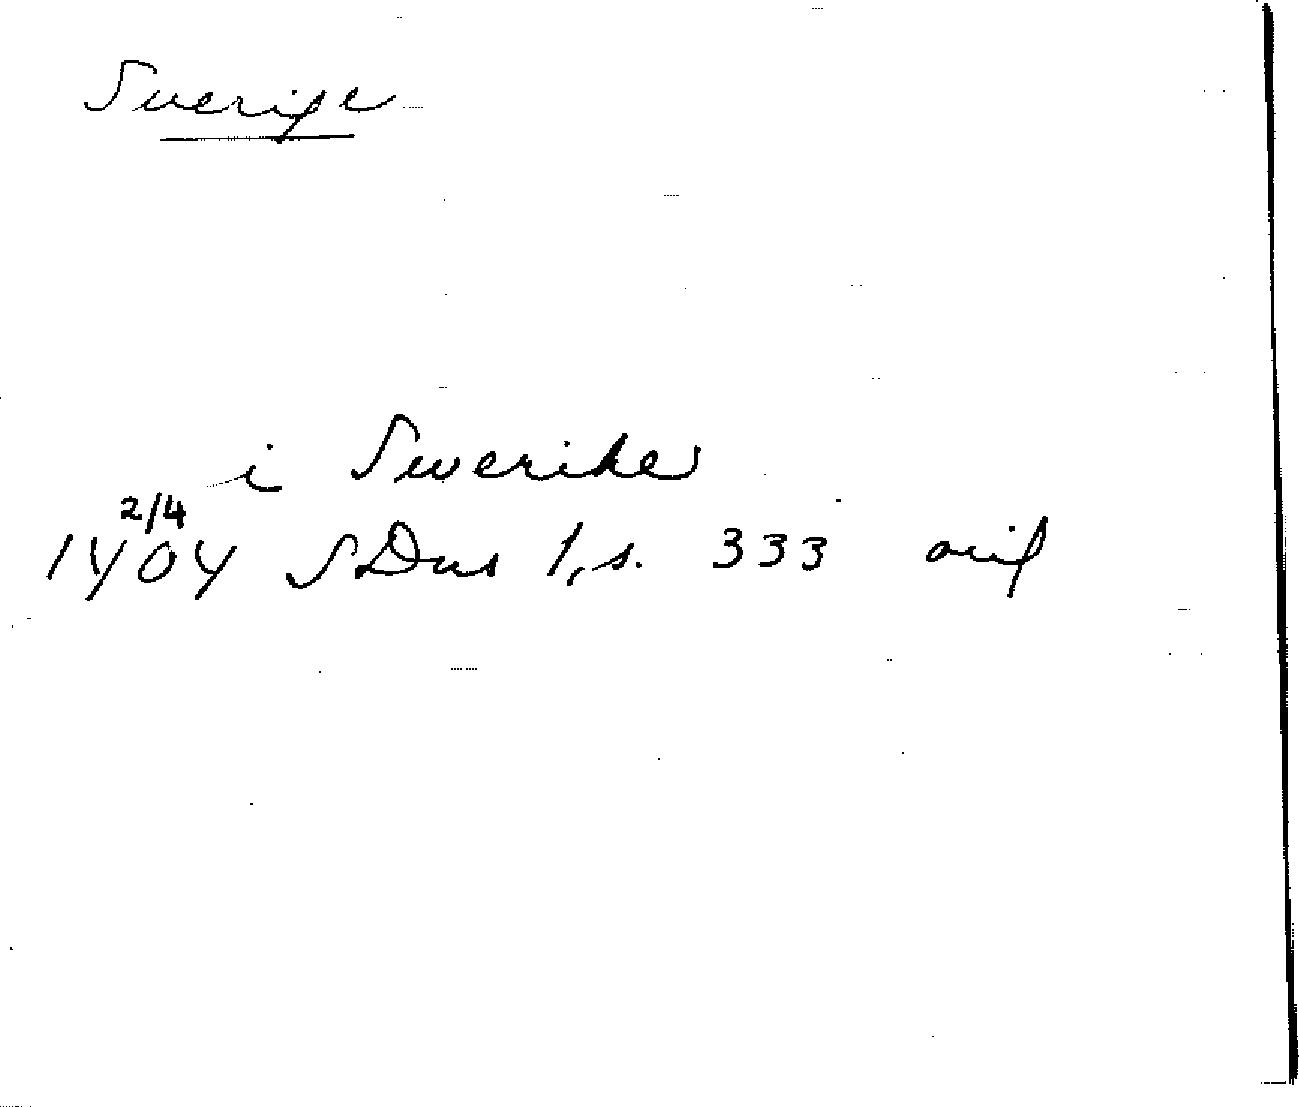 Sverige
i Swerike
2/4
1404 SDns 1, s. 333 avil